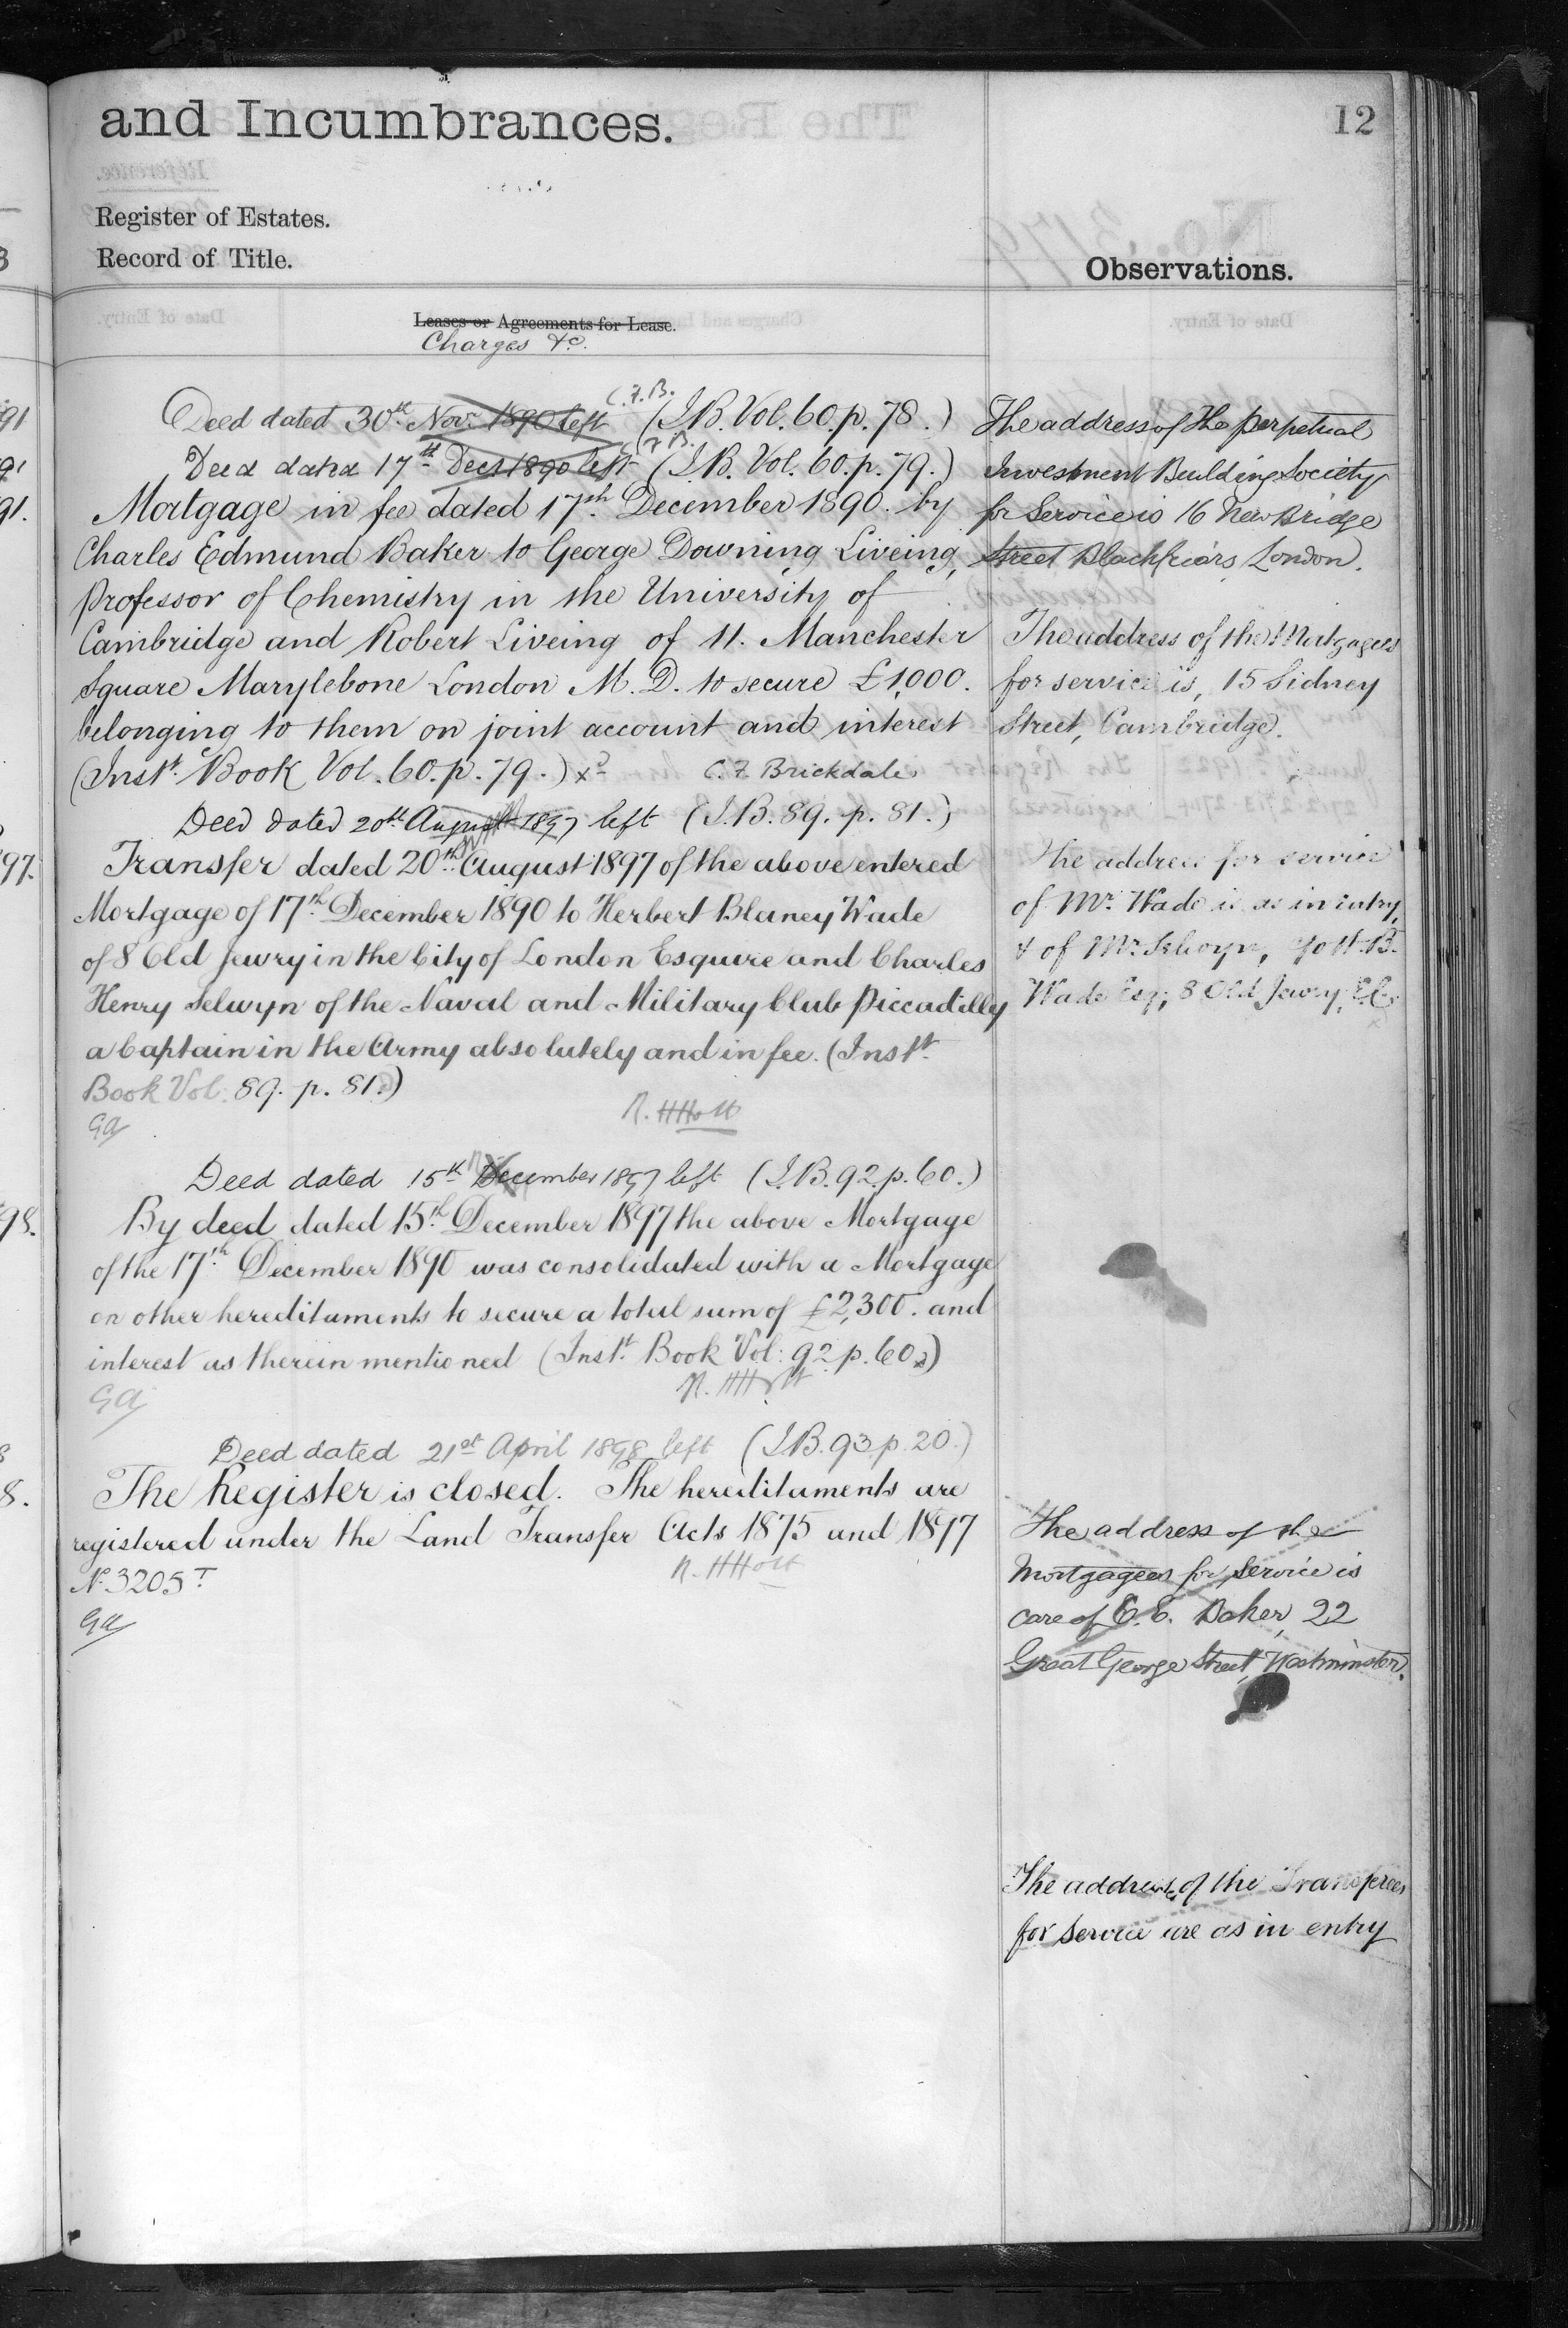 and Incumbrances.
12
Register of Estates.
Record of Title.
Observations.
Leases or Agreements for Lease.
Charges &c.
C.F.B.
Deed dated 30th Novr 1890 left (I.B. Vol. 60. p. 78.)
C.F.B.
Deed dated 17th Decr 1890 left (I.B. Vol. 60. p. 79.)
Mortgage in fee dated 17th December 1890. by
Charles Edmund Baker to George Downing Liveing,
Professor of Chemistry in the University of
Cambridge and Robert Liveing of 11. Manchester
Square Marylebone London M.D. to secure £1,000.
belonging to them on joint account and interest
(Instt. Book Vol. 60. p. 79.)
C. F. Brickdale
Deed dated 20th August 1897 left (I.B. 89. p. 81.)
Transfer dated 20th August 1897 of the above entered
Mortgage of 17th December 1890 to Herbert Blaney Wade
of 8 Old Jewry in the City of London Esquire and Charles
Henry Selwyn of the Naval and Military Club Piccadilly
a Captain in the Army absolutely and in fee. (Instt
Book Vol. 89. p. 81.)
R. H Holt
Ga
Deed dated 15th December 1897 left (I.B. 92. p. 60.)
By deed dated 15th December 1897 the above Mortgage
of the 17th December 1890 was consolidated with a Mortgage
on other hereditaments to secure a total sum of £2,300. and
interest as therein mentioned (Instt. Book Vol: 92 p. 60.)
R. H Holt
Ga
Deed dated 21st April 1898 left (I.B. 93. p. 20.)
The Register is closed. The hereditaments are
registered under the Land Transfer Acts 1875 and 1897
No. 3205 T
R. H Holt
Ga
The address of the Perpetual
Investment Building Society
for Service is 16 New Bridge
Street Blackfriars, London.
The address of the Mortgagees
for service is, 15 Sidney
Street, Cambridge.
The address for service
of Mr. Wade is as in entry,
& of Mr. Selwyn, c/o H.B.
Wade Esq; 8 Old Jewry, E.C.
The address of the
Mortgagees for Service is
care of C.E. Baker, 22
Great George Street, Westminster.
The address of the Transferees
for Service are as in entry